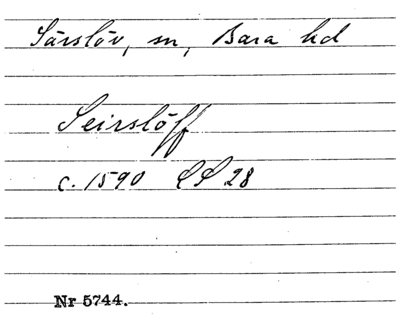 Särslöv, sn, Bara hd
Seirslöff
c. 1590 LL 28
Nr 5744.